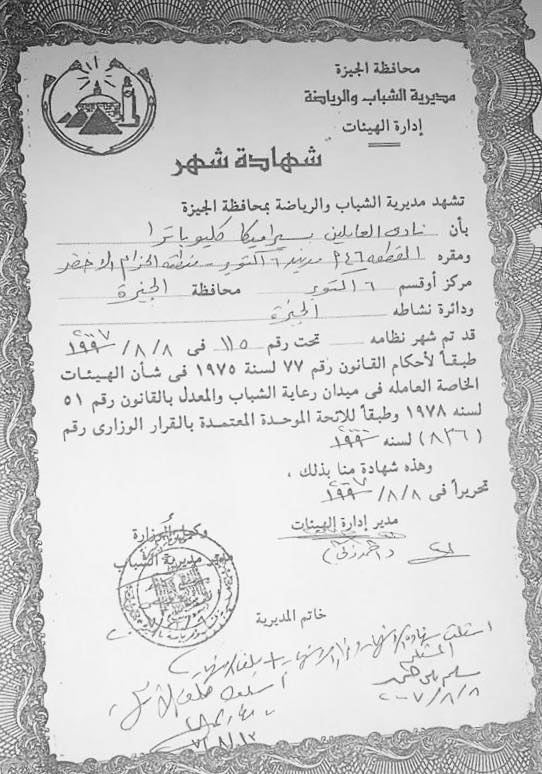 محافظة الجيزة
مديرية الشباب والرياضة
إدارة الهيئات
شهادة شهر
تشهد مديرية الشباب والرياضة بمحافظة الجيزة
بأن نادى العاملين بسيراميكا كليوباترا
ومقره القطعه ٢٤٦ مدينة ٦ أكتوبر - منطقة الحزام الاخضر
مركز أوقسم ٦ أكتوبر محافظة الجيزة
ودائرة نشاطه الجيزة
قد تم شهر نظامه تحت رقم ١١٥ فى ٨/٨/٢٠٠٧
طبقاً لأحكام القانون رقم ٧٧ لسنة ١٩٧٥ فى شأن الهيئات
الخاصة العامله فى ميدان رعاية الشباب والمعدل بالقانون رقم ٥١
لسنه ١٩٧٨ وطبقاً للائحة الموحدة المعتمدة بالقرار الوزارى رقم
(٨٣٦) لسنه ٢٠٠٠
وهذه شهادة منا بذلك ،
تحريراً فى ٨/٨/٢٠٠٧
مدير إدارة الهيئات
وكيل الوزارة
مدير مديرية الشباب
خاتم المديرية
استلمت شهادة الاشهار
المستلم
٢٠٠٧/٨/٨